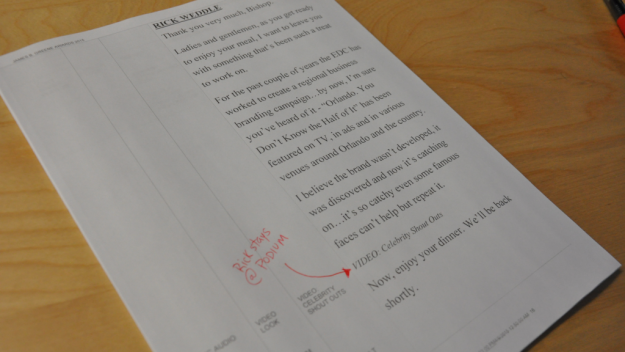 RICK WEDDLE
Thank you very much, Bishop.
Ladies and gentlemen, as you get ready
to enjoy your meal, I want to leave you
with something that's been such a treat
to work on.
For the past couple of years the EDC has
worked to create a regional business
branding campaign…by now, I'm sure
you've heard of it - "Orlando. You
Don't Know the Half of It" has been
featured on TV, in ads and in various
venues around Orlando and the country.
I believe the brand wasn't developed, it
was discovered and now it's catching
on…it's so catchy even some famous
faces can't help but repeat it.
Rick stays
@ PODIUM
VIDEO- Celebrity Shout Outs
Now, enjoy your dinner. We'll be back
shortly.
AUDIO
VIDEO
LOOK
VIDEO:
CELEBRITY
SHOUT OUTS